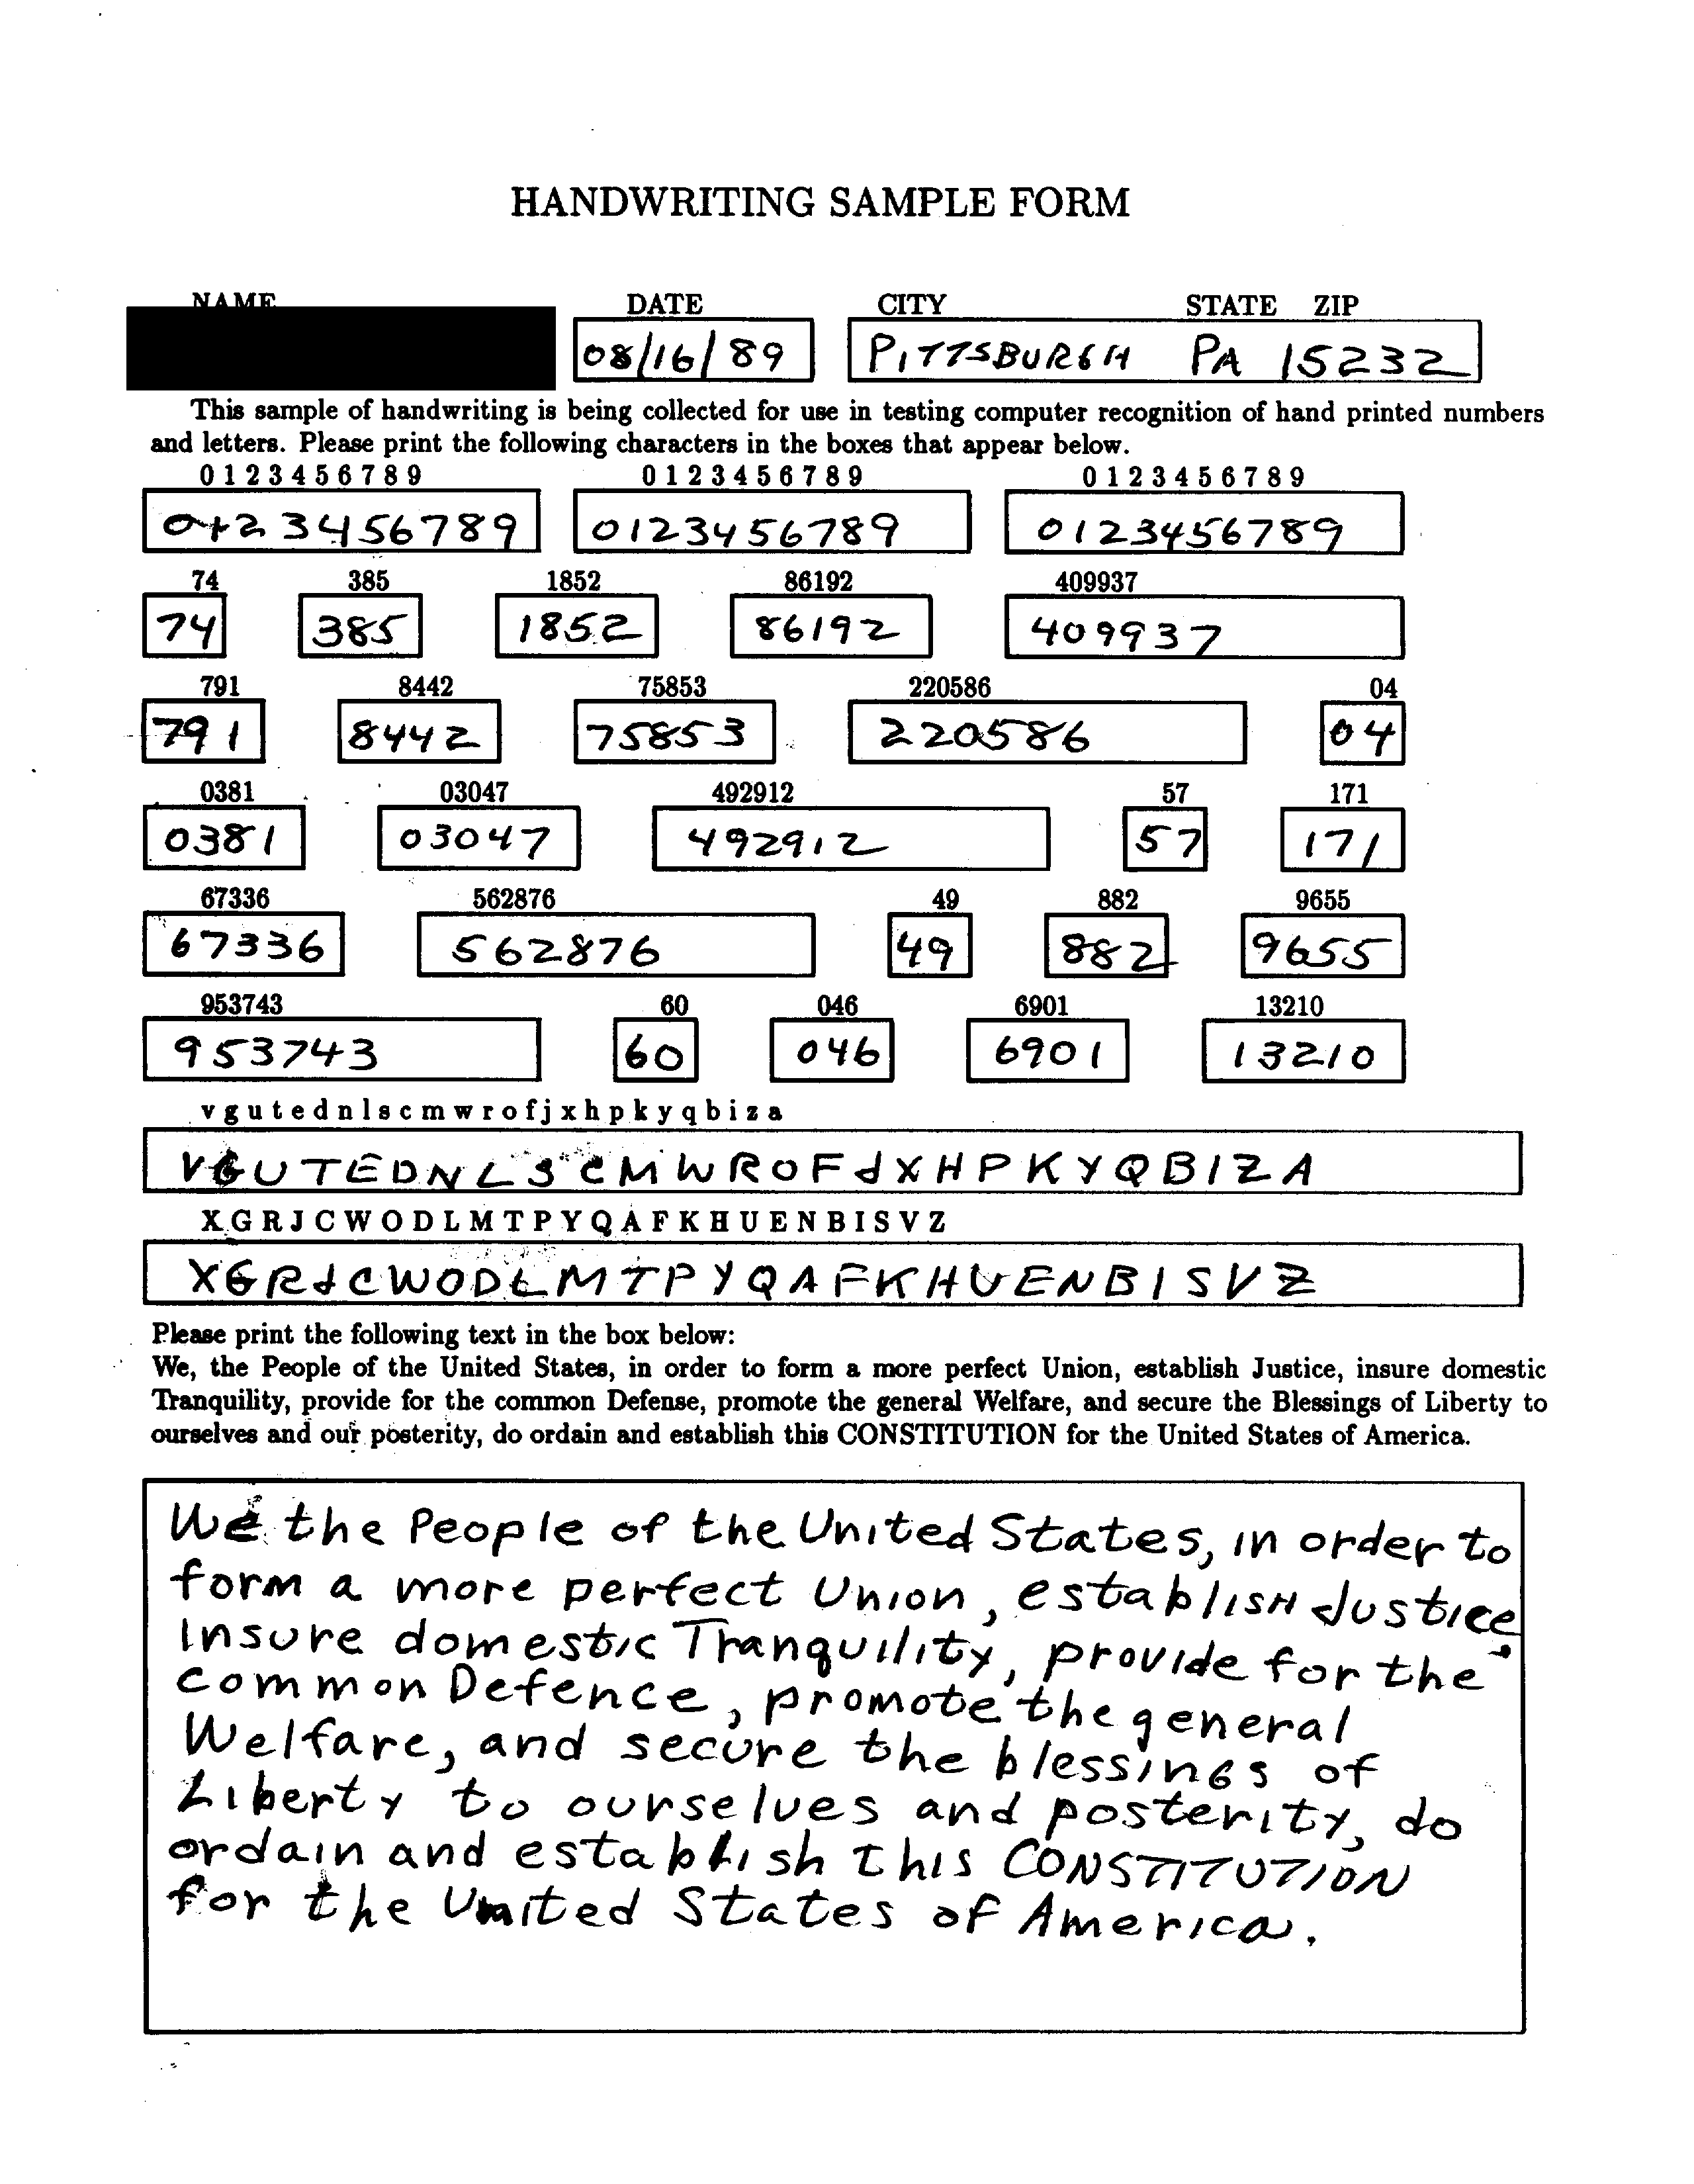 HANDWRITING SAMPLE FORM
NAME DATE CITY STATE ZIP
08/16/89 PITTSBURGH PA 15232
This sample of handwriting is being collected for use in testing computer recognition of hand printed numbers
and letters. Please print the following characters in the boxes that appear below.
0 1 2 3 4 5 6 7 8 9 0 1 2 3 4 5 6 7 8 9 0 1 2 3 4 5 6 7 8 9
0123456789 0123456789 0123456789
74 385 1852 86192 409937
74 385 1852 86192 409937
791 8442 75853 220586 04
791 8442 75853 220586 04
0381 03047 492912 57 171
0381 03047 492912 57 171
67336 562876 49 882 9655
67336 562876 49 882 9655
953743 60 046 6901 13210
953743 60 046 6901 13210
v g u t e d n l s c m w r o f j x h p k y q b i z a
V G U T E D N L S C M W R O F J X H P K Y Q B I Z A
X G R J C W O D L M T P Y Q A F K H U E N B I S V Z
X G R J C W O D L M T P Y Q A F K H U E N B I S V Z
Please print the following text in the box below:
We, the People of the United States, in order to form a more perfect Union, establish Justice, insure domestic
Tranquility, provide for the common Defense, promote the general Welfare, and secure the Blessings of Liberty to
ourselves and our posterity, do ordain and establish this CONSTITUTION for the United States of America.
We the People of the United States, in order to
form a more perfect Union, establisH Justice,
Insure domestic Tranquility, provide for the
common Defence, promote the general
Welfare, and secure the blessinGs of
Liberty to ourselves and posterity, do
ordain and establish this CONSTITUTION
for the United States of America.